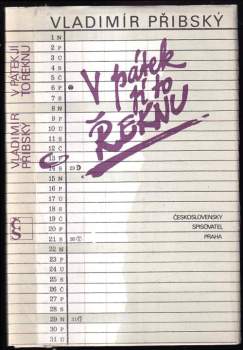 VLADIMÍR PŘIBSKÝ
V PÁTEK JÍ
TO ŘEKNU
VLADIMÍR
PŘIBSKÝ
VLADIMÍR PŘIBSKÝ
V pátek
jí to
ŘEKNU
1 N
2 P
3 U
4 S
5 Č
6 P
7 S
8 N
9 P
10 U
11 S
12 Č
13 P
14 S
15 N
16 P
17 U
18 S
19 Č
20 P
21 S
22 N
23 P
24 U
25 S
26 Č
27 P
28 S
29 N
30 P
31 U
ČESKOSLOVENSKÝ
SPISOVATEL
PRAHA